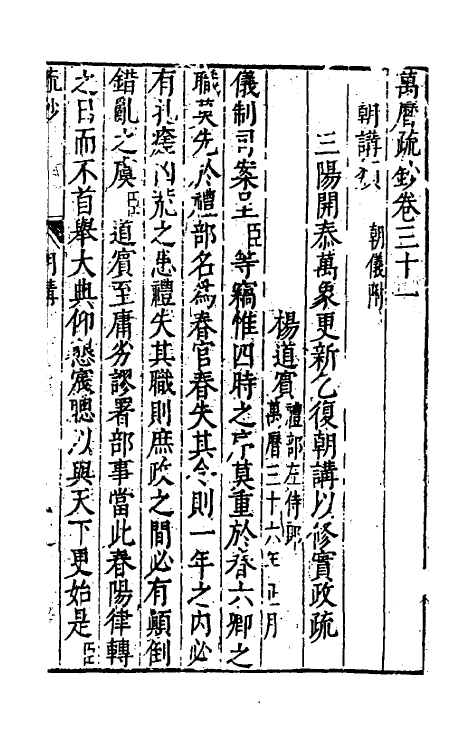 萬曆疏鈔卷三十一
朝講類 朝儀附
三陽開泰萬象更新乞復朝講以修實政疏
楊道賓 禮部左侍郎 萬曆三十六年正月
儀制司案呈臣等竊惟四時之序莫重於春六卿之
職莫先於禮部名為春官春失其令則一年之內必
有札瘥凶荒之患禮失其職則庶政之間必有顛倒
錯亂之虞臣道賓至庸劣謬署部事當此春陽律轉
之日而不首舉大典仰懇宸聰以與天下更始是臣
疏鈔 朝講